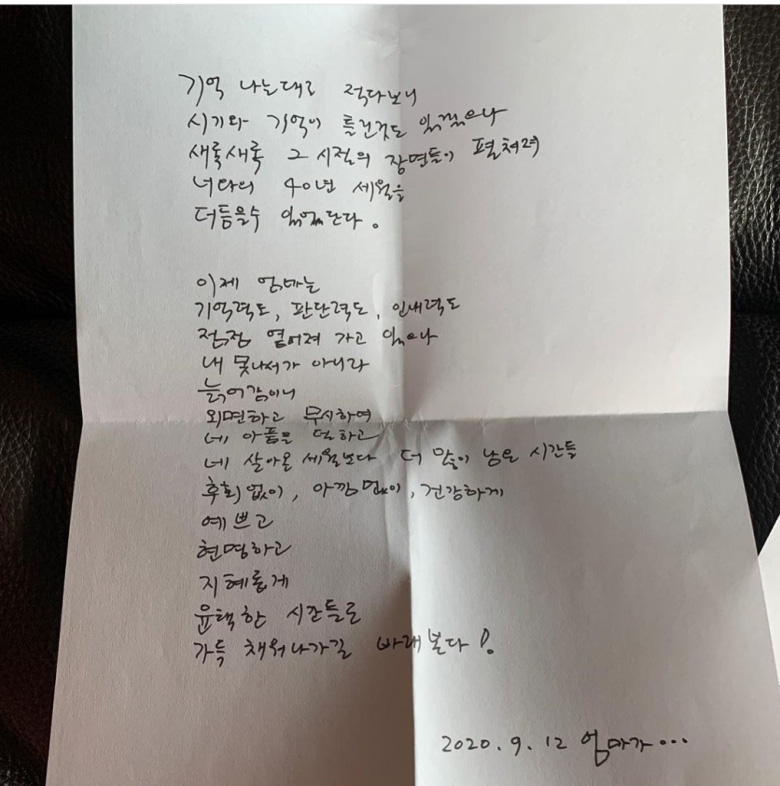 기억 나는대로 적다보니
시기와 기억이 틀린것도 있겠으나
새록새록 그 시절의 장면들이 펼쳐져
너와의 40년 세월을
더듬을수 있었단다.
이제 엄마는
기억력도, 판단력도, 인내력도
점점 옅어져 가고 있으나
내 못나서가 아니라
늙어감이니
외면하고 무시하여
네 아픔을 덜하고
네 살아온 세월보다 더 많이 남은 시간들
후회없이, 아낌없이, 건강하게
예쁘고
현명하고
지혜롭게
윤택한 시간들로
가득 채워나가길 바래본다!
2020. 9. 12 엄마가...